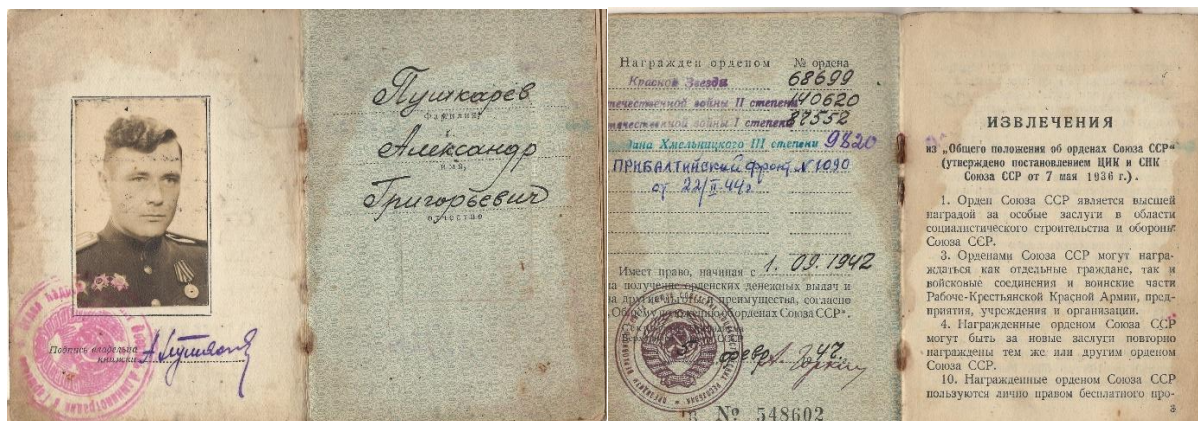 Подпись владельца
книжки
Пушкарев
фамилия,
Александр
имя,
Григорьевич
отчество
Награжден орденом № ордена
Красной Звезды 68699
течественной войны II степени 140620
течественной войны I степени 87552
дана Хмельницкого III степени 9820
ПРИБАЛТИЙСКИЙ фронт. N 1090
от 22/II-44г.
Имеет право, начиная с 1. 09. 1942
на получение орденских денежных выдач и
на другие льготы и преимущества, согласно
„Общему положению об орденах Союза ССР".
февр. 47.
№ 548602
ИЗВЛЕЧЕНИЯ
из „Общего положения об орденах Союза ССР"
(утверждено постановлением ЦИК и СНК
Союза ССР от 7 мая 1936 г.).
1. Орден Союза ССР является высшей
наградой за особые заслуги в области
социалистического строительства и обороны
Союза ССР.
3. Орденами Союза ССР могут награ-
ждаться как отдельные граждане, так и
войсковые соединения и воинские части
Рабоче-Крестьянской Красной Армии, пред-
приятия, учреждения и организации.
4. Награжденные орденом Союза ССР
могут быть за новые заслуги повторно
награждены тем же или другим орденом
Союза ССР.
10. Награжденные орденом Союза ССР
пользуются лично правом бесплатного про-
3